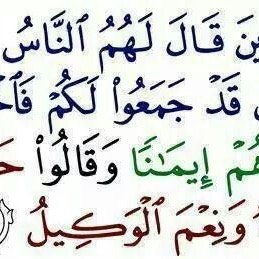 ينَ قَالَ لَهُمُ ٱلنَّاسُ
قَدْ جَمَعُوا۟ لَكُمْ فَٱخْ
هُمْ إِيمَـٰنًا وَقَالُوا۟ حَ
وَنِعْمَ ٱلْوَكِيلُ